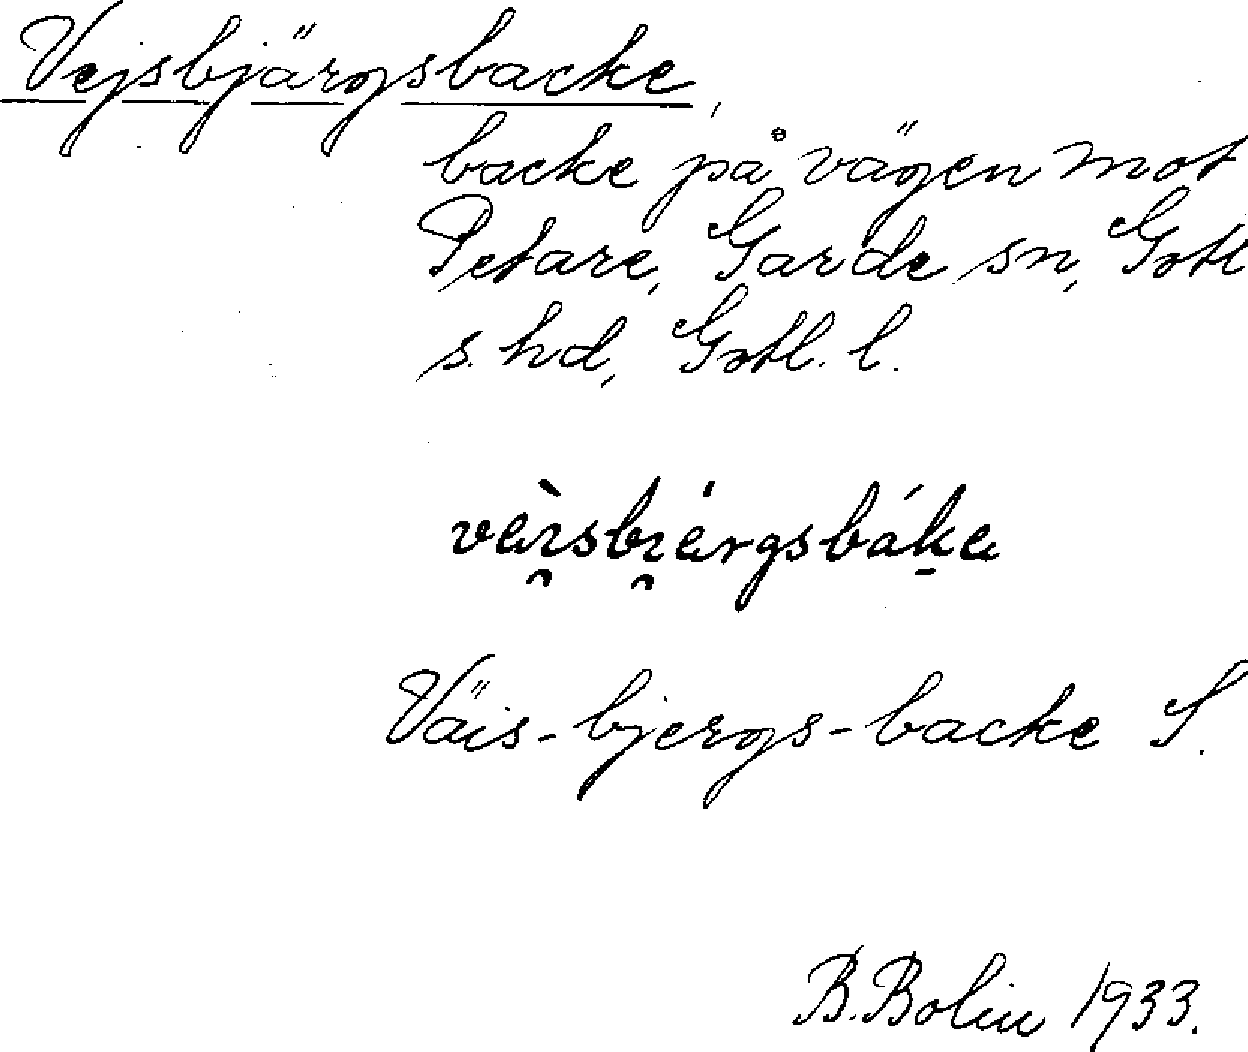 Vejsbjärgsbacke,
backe på vägen mot
Petare, Garde sn, Gotl
s. hd, Gotl. l.
Väis-bjergs-backe S.
B. Bolin 1933.